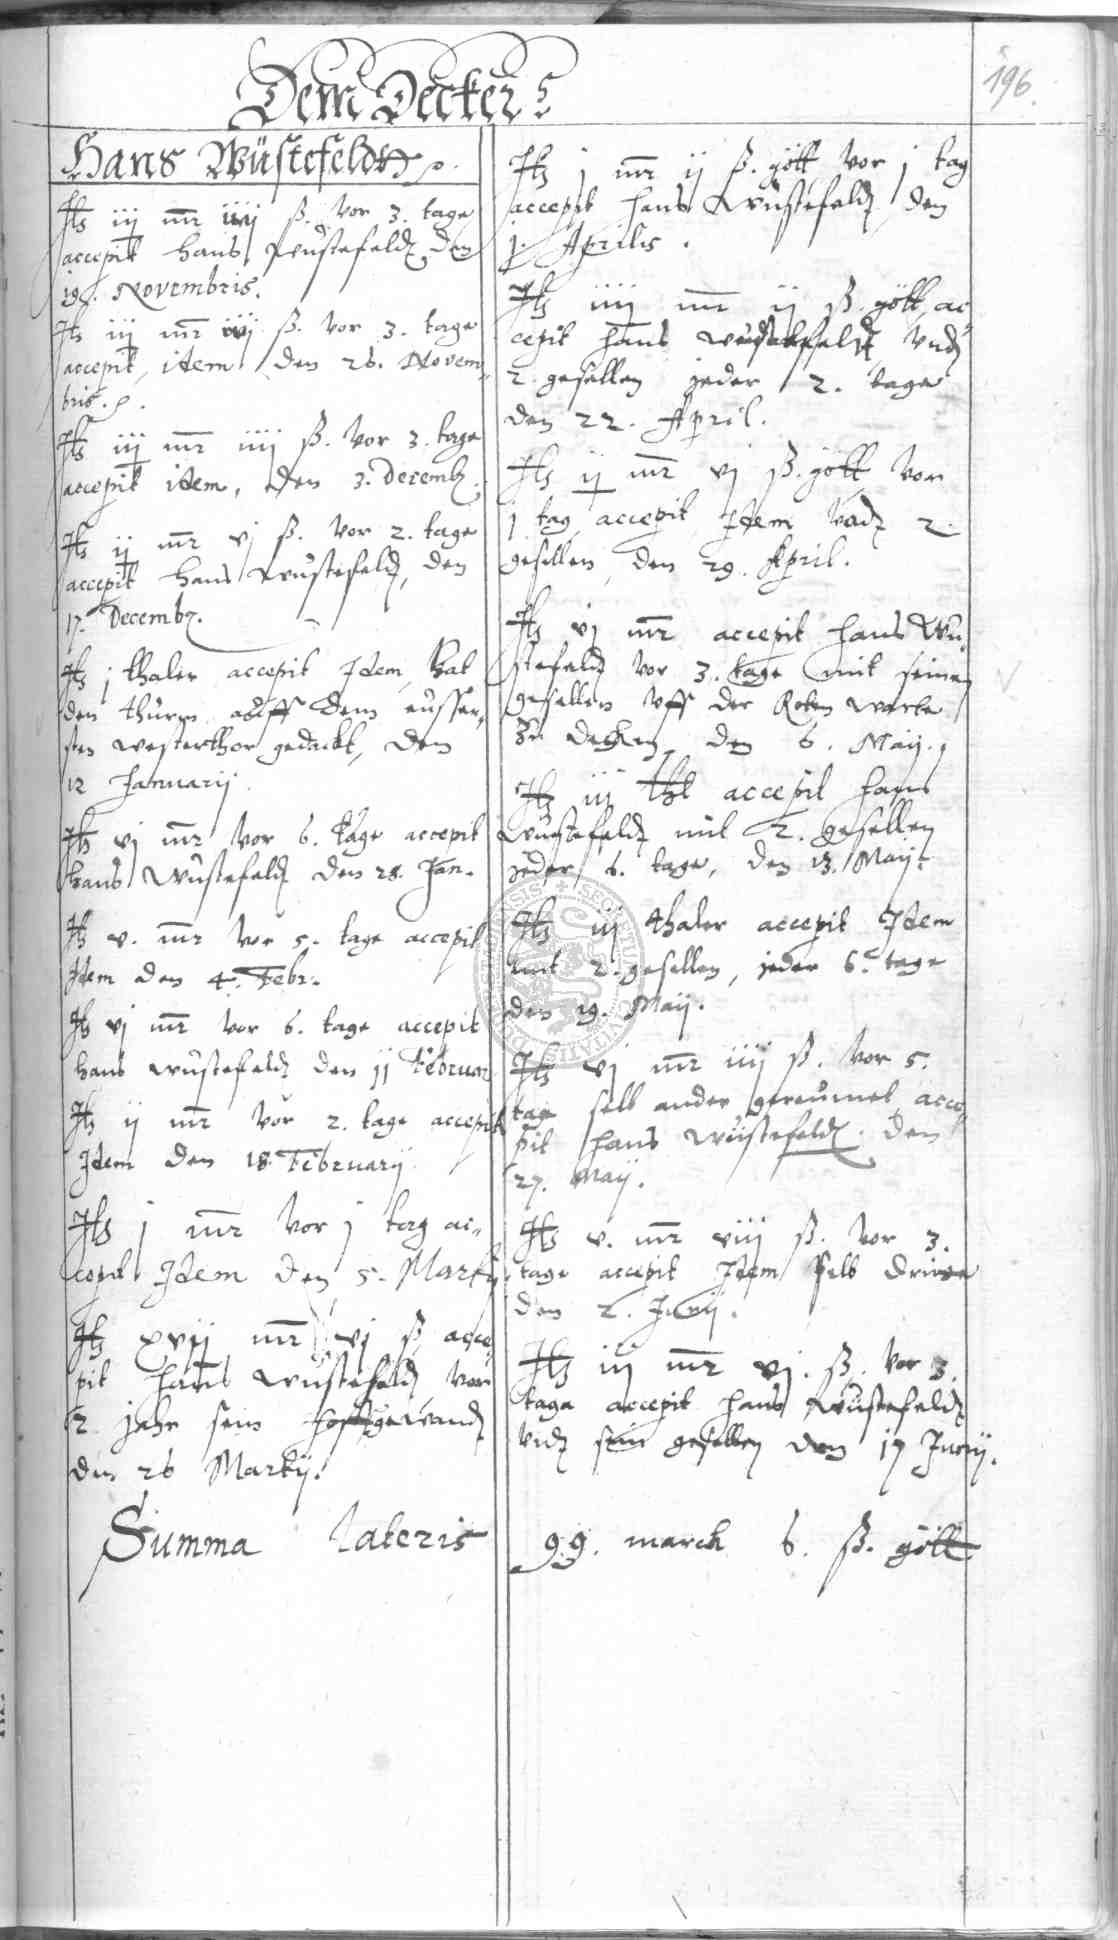 196.
Dem Decker
Hans Wüstefeldt
Itz iij mr iiij ß. vor 3. tage
accepit hans Wüstefeldt den
19. Novembris.
Itz iij mr iiij ß. vor 3. tage
accepit, item den 26. Novem„
bris.
Itz iij mr iiij ß. vor 3. tage
accepit item, den 3. Decemb.
Itz ij mr vj ß. vor 2. tage
accepit hans Wüstefeldt, den
17. Decemb.
Itz j thaler accepit Idem, hat
den thurm auff dem eusser„
sten westerthor gedackt, den
12 Januarij
Itz vj mr vor 6. tage accepit
hans Wüstefeldt den 28. Jan.
Itz v. mr vor 5. tage accepit
Idem den 4. Febr.
Itz vj mr vor 6. tage accepit
hans wüstefeldt den 11 Februar
Itz ij mr vor 2. tage accepit
Idem den 18. Februarij
Itz j mr vor j tag ac„
cepit Idem den 5. Martij
Itz xvij mr vj ß acce„
pit hans Wüstefeldt vor
2 jahr sein hoffgewandt
den 26 Martij.
Itz j mr ij ß. gött vor j tag
accepit hans Wüstefeldt den
j. Aprilis.
Itz iiij mr ij ß. gött ac„
cepit hans wüstefeldt vnd
2 gesellen jeder 2. tage
den 22. April.
Itz ij mr vj ß. gött vor
j tag accepit Idem vnd 2
gesellen, den 29. April.
Itz vj mr accepit hans Wu„
stefeldt vor 3. tage mit seinen
gesellen vff der Roten warte
zu decken den 6. Maij.
Itz iij thl accepit hans
Wüstefeldt mit 2. gesellen
jeder 6. tage, den 13. Maij.
Itz iij thaler accepit Idem
mit 2. gesellen, jeder 6. tage
den 19. Maij.
Itz vj mr iiij ß. vor 5.
tage selb ander gereumet acce„
pit hans wüstefeldt. den
27. Maij.
Itz v. mr viij ß. vor 3.
tage accepit Idem selb dritte
den 2. Junij.
Itz iij mr vj. ß. vor 3.
tage accepit hans Wüstefeldt
vnd sein gesellen den 17 Junij.
Summa lateris 99. march 6. ß. gött